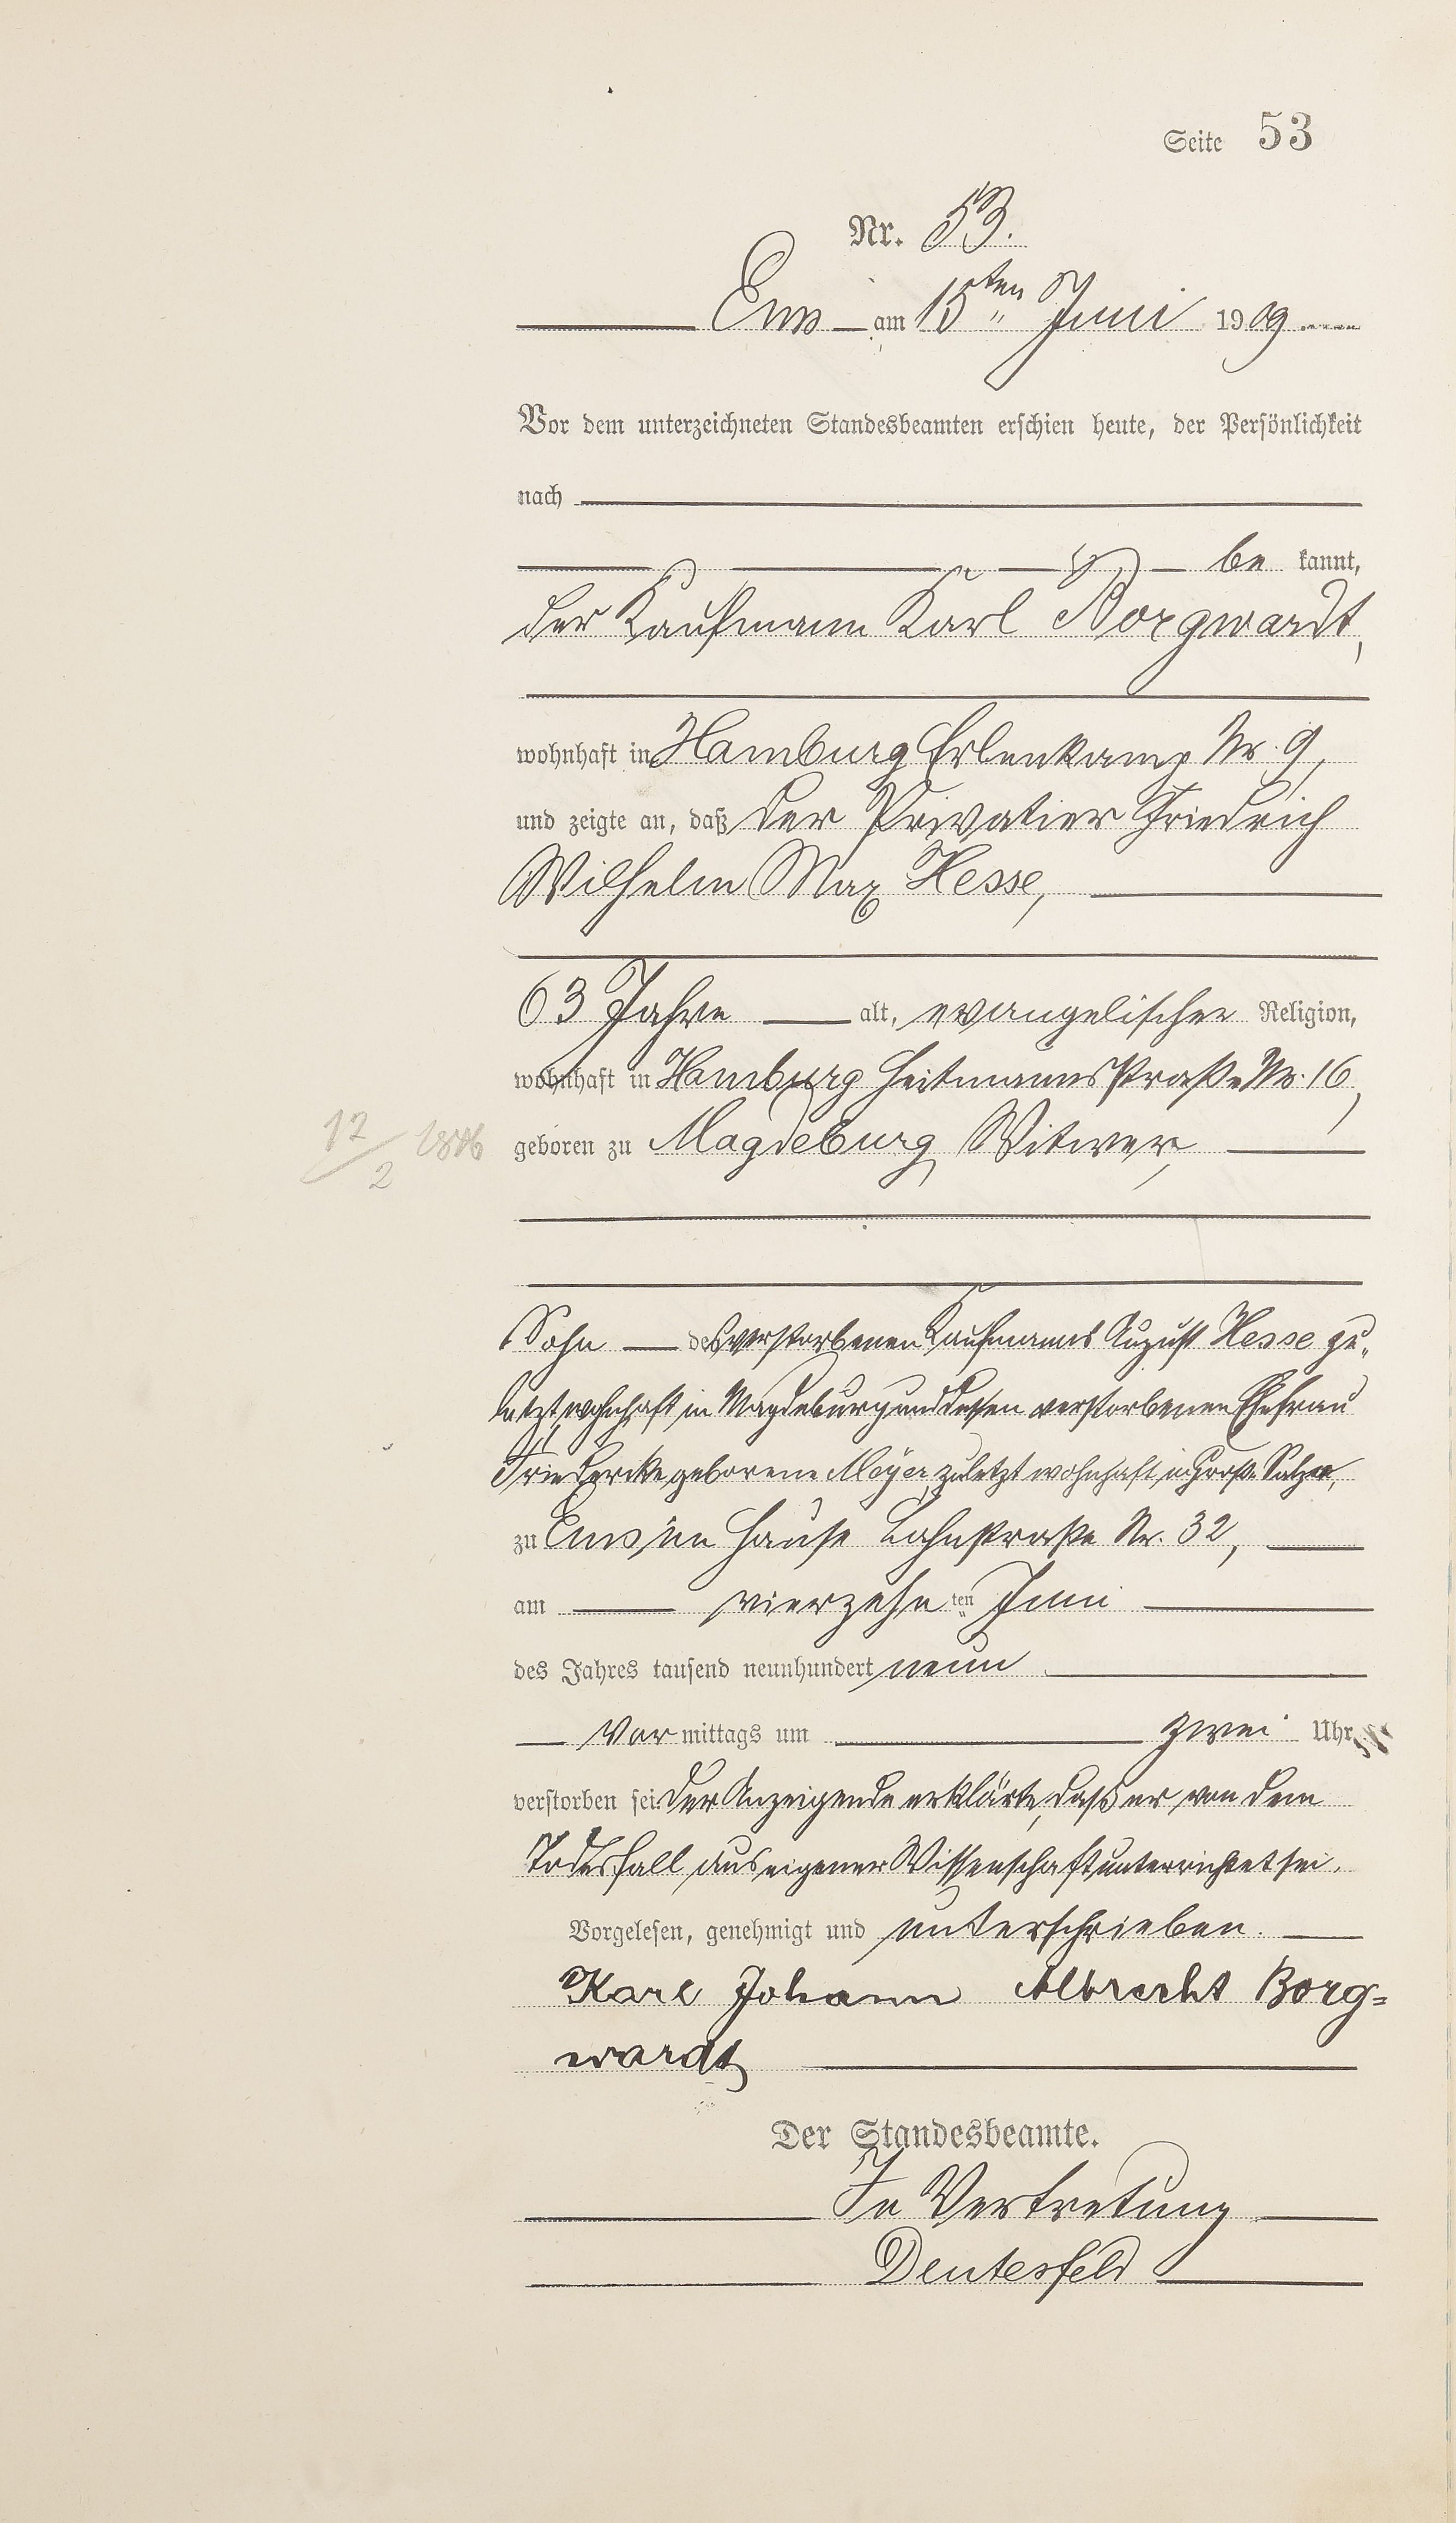 Seite 53
Nr. 53.
Ems am 15ten Juni 1909
Vor dem unterzeichneten Standesbeamten erschien heute, der Persönlichkeit
nach
be kannt,
der Kaufmann Karl Borgwardt,
wohnhaft in Hamburg Erlenkamp Nr. 9,
und zeigte an, daß der Privatier Friedrich
Wilhelm Max Hesse,
63 Jahre alt, evangelischer Religion,
wohnhaft in Hamburg Heitmannstraße Nr. 16,
12/2 1846 geboren zu Magdeburg, Witwer,
Sohn des verstorbenen Kaufmanns August Hesse zu-
letzt wohnhaft in Magdeburg und dessen verstorbenen Ehefrau
Friedericke geborene Meyer, zuletzt wohnhaft in Groß Salze,
zu Ems im Hause Lahnstraße Nr. 32,
am vierzehn ten Juni
des Jahres tausend neunhundert neun
Vor mittags um zwei Uhr
verstorben sei. Der Anzeigende erklärte, daß er von dem
Todesfall aus eigener Wissenschaft unterrichtet sei.
Vorgelesen, genehmigt und unterschrieben.
Karl Johann Albrecht Borg=
wardt
Der Standesbeamte.
In Vertretung
Deutesfeld